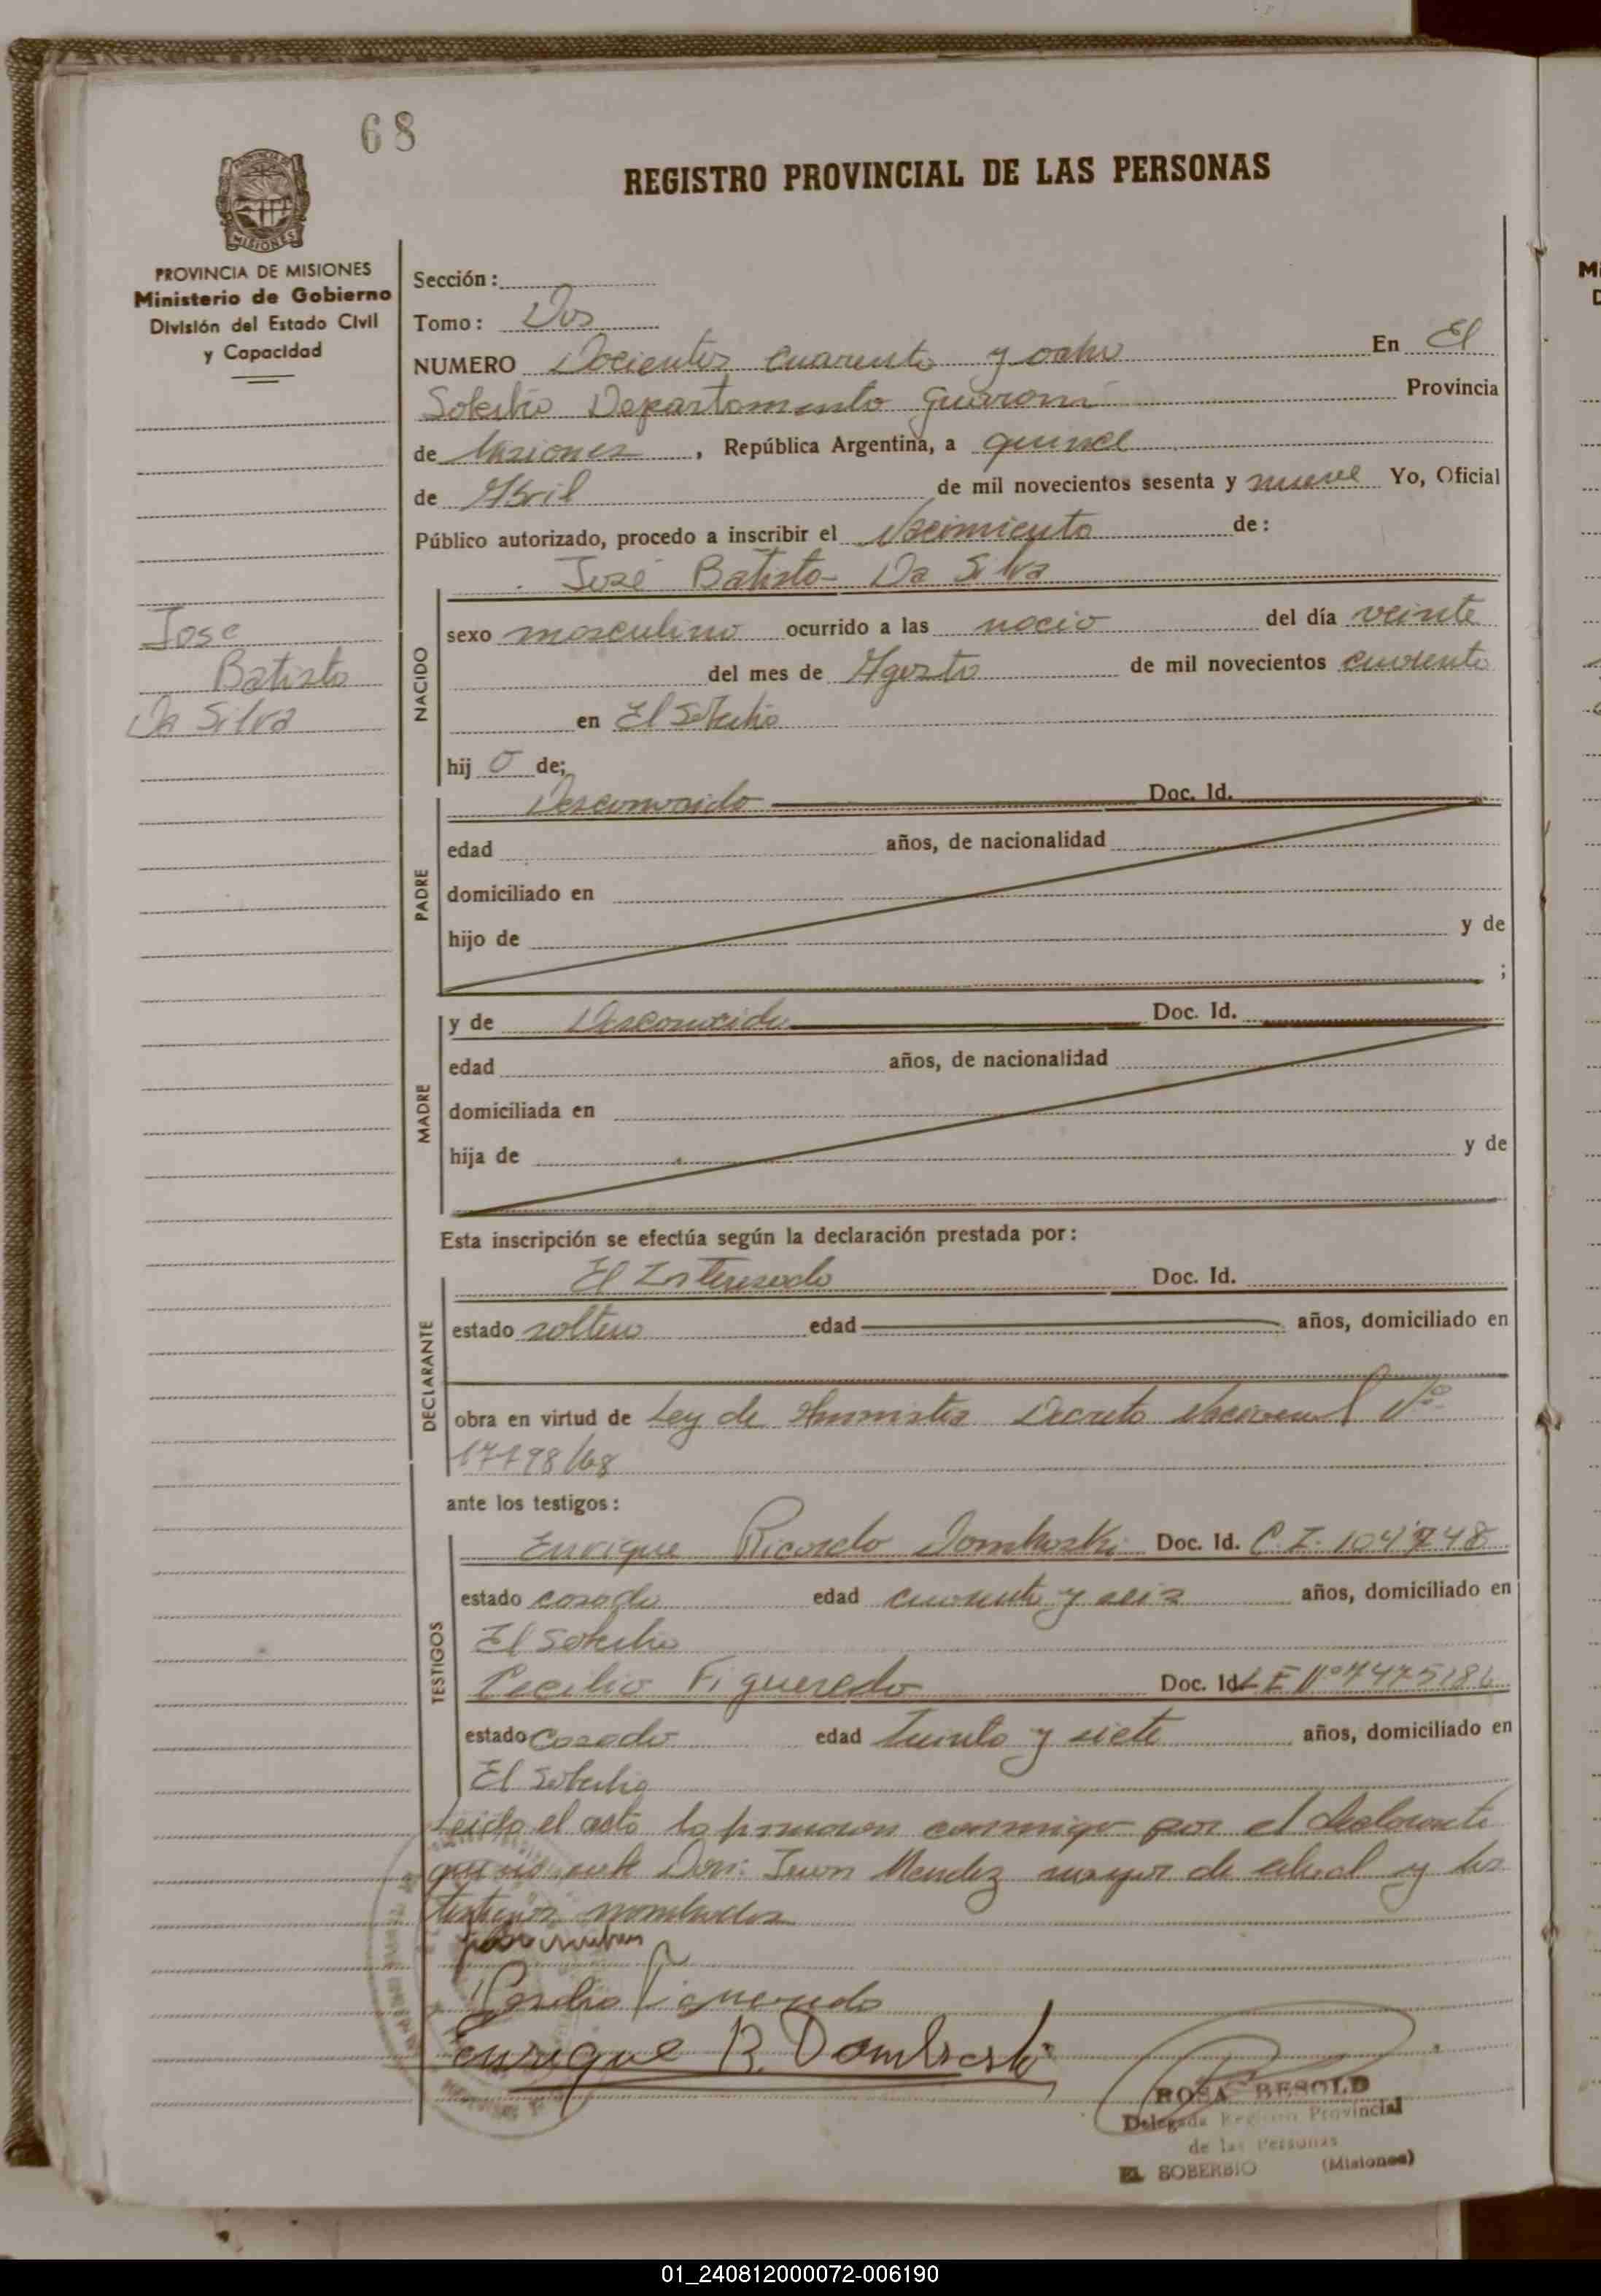 68
REGISTRO PROVINCIAL DE LAS PERSONAS
PROVINCIA DE MISIONES
Ministerio de Gobierno
División del Estado Civil
y Capacidad
Sección:
Tomo: Dos
NUMERO Docientos cuarenta y ocho En El
Soberbio Departamento Guaraní Provincia
de Misiones, República Argentina, a quince
de Abril de mil novecientos sesenta y nueve Yo, Oficial
Público autorizado, procedo a inscribir el Nacimiento de:
José Batista Da Silva
Jose
Batista
Da Silva
NACIDO
sexo masculino ocurrido a las nocio del día veinte
del mes de Agosto de mil novecientos cuarenta
en El Soberbio
hij o de;
PADRE
Desconocido Doc. Id.
edad años, de nacionalidad
domiciliado en
hijo de y de
;
MADRE
y de Desconocida Doc. Id.
edad años, de nacionalidad
domiciliada en
hija de y de
Esta inscripción se efectúa según la declaración prestada por:
DECLARANTE
El Interesado Doc. Id.
estado soltero edad años, domiciliado en
obra en virtud de Ley de Decreto Nacional Nº
/68
ante los testigos:
TESTIGOS
Enrique Ricardo Dombroski Doc. Id. C.I. 104748
estado casado edad cuarenta y seis años, domiciliado en
El Soberbio
Cecilio Figueredo Doc. Id L E Nº
estado casado edad treinta y siete años, domiciliado en
El Soberbio
Leida el acta la firmaron conmigo por el declarante
Don: Juan Mendez mayor de edad y los
testigos nombrados
Cecilio Figueredo
Enrique R. Dombroski
ROSA BESOLD
Delegada Registro Provincial
de las Personas
EL SOBERBIO (Misiones)
01_240812000072-006190